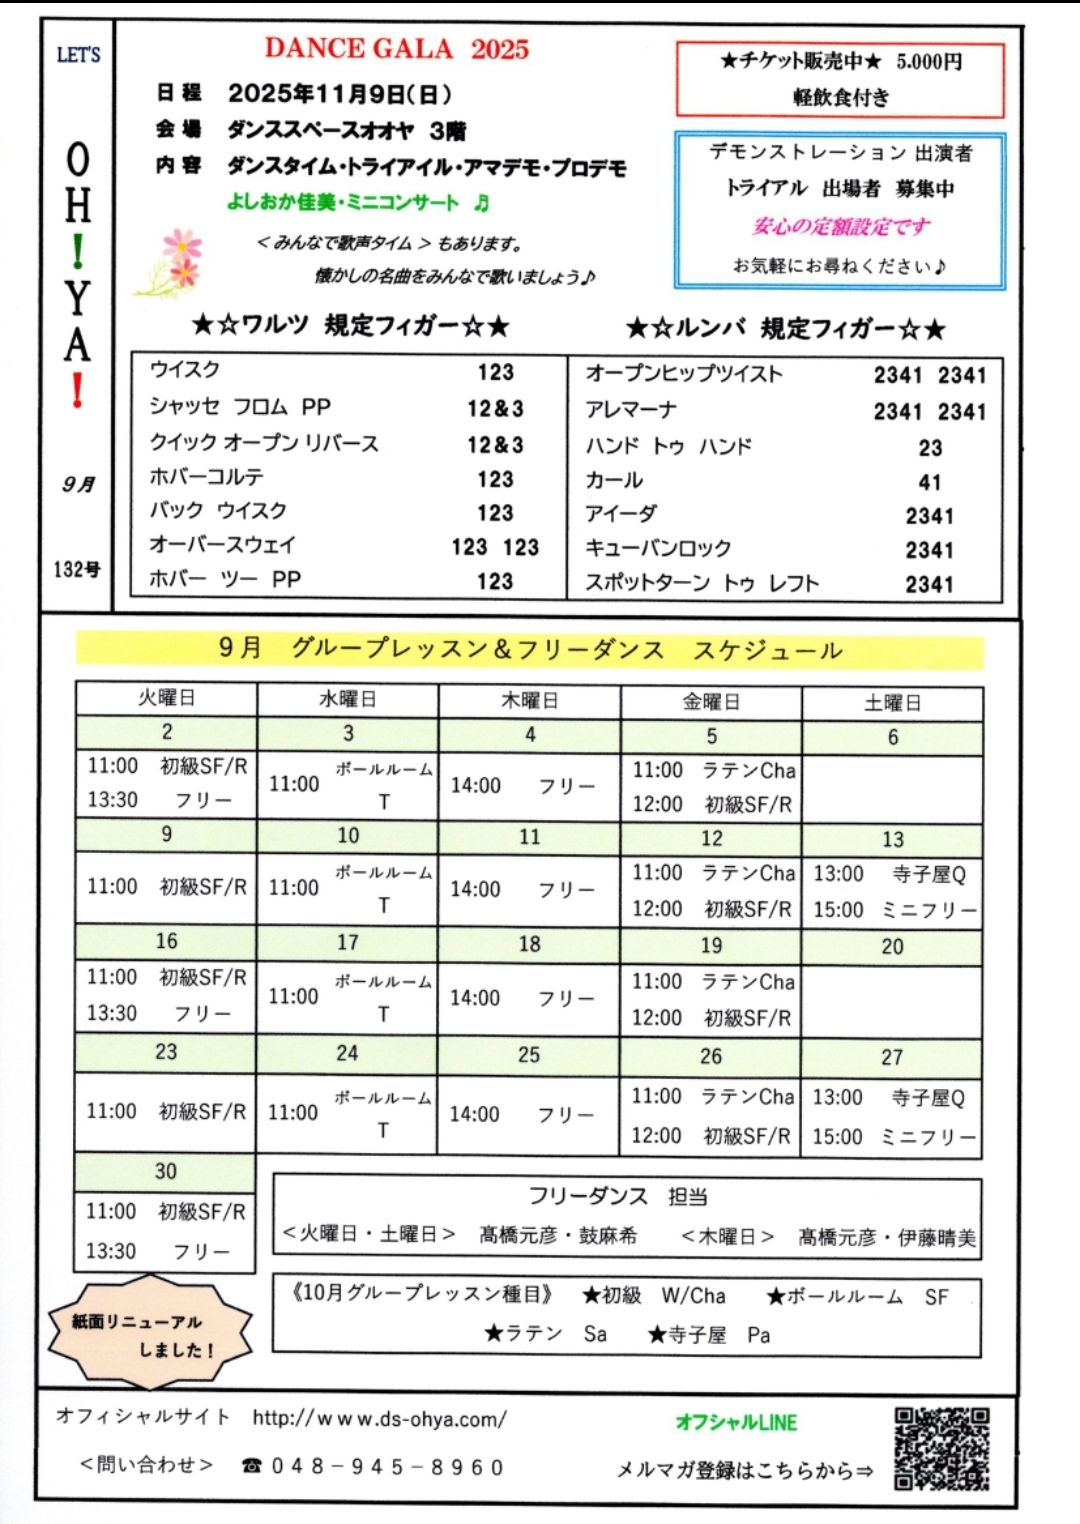 LET'S
OH!YA!
9月
132号
DANCE GALA 2025
日程 2025年11月9日(日)
会場 ダンススペースオオヤ 3階
内容 ダンスタイム・トライアイル・アマデモ・プロデモ
よしおか佳美・ミニコンサート ♬
<みんなで歌声タイム>もあります。
懐かしの名曲をみんなで歌いましょう♪
★チケット販売中★ 5.000円
軽飲食付き
デモンストレーション 出演者
トライアル 出場者 募集中
安心の定額設定です
お気軽にお尋ねください♪
★☆ワルツ 規定フィガー☆★
ウイスク 123
シャッセ フロム PP 12&3
クイック オープン リバース 12&3
ホバーコルテ 123
バック ウイスク 123
オーバースウェイ 123 123
ホバー ツー PP 123
★☆ルンバ 規定フィガー☆★
オープンヒップツイスト 2341 2341
アレマーナ 2341 2341
ハンド トゥ ハンド 23
カール 41
アイーダ 2341
キューバンロック 2341
スポットターン トゥ レフト 2341
9月 グループレッスン&フリーダンス スケジュール
火曜日 水曜日 木曜日 金曜日 土曜日
2 3 4 5 6
11:00 初級SF/R
13:30 フリー
11:00 ボールルーム
T
14:00 フリー
11:00 ラテンCha
12:00 初級SF/R
9 10 11 12 13
11:00 初級SF/R
11:00 ボールルーム
T
14:00 フリー
11:00 ラテンCha
12:00 初級SF/R
13:00 寺子屋Q
15:00 ミニフリー
16 17 18 19 20
11:00 初級SF/R
13:30 フリー
11:00 ボールルーム
T
14:00 フリー
11:00 ラテンCha
12:00 初級SF/R
23 24 25 26 27
11:00 初級SF/R
11:00 ボールルーム
T
14:00 フリー
11:00 ラテンCha
12:00 初級SF/R
13:00 寺子屋Q
15:00 ミニフリー
30
11:00 初級SF/R
13:30 フリー
フリーダンス 担当
<火曜日・土曜日> 髙橋元彦・鼓麻希 <木曜日> 髙橋元彦・伊藤晴美
《10月グループレッスン種目》 ★初級 W/Cha ★ボールルーム SF
★ラテン Sa ★寺子屋 Pa
紙面リニューアル
しました!
オフィシャルサイト http://www.ds-ohya.com/
<問い合わせ> ☎048-945-8960
オフシャルLINE
メルマガ登録はこちらから⇒